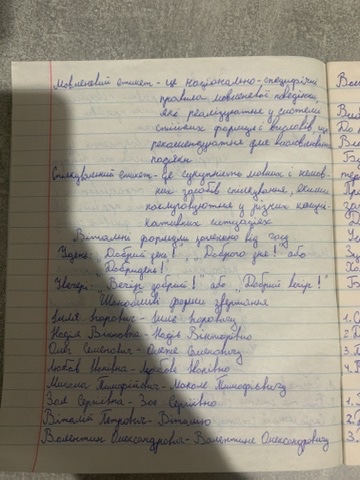 Мовленевий етикет - це національно-специфічні
правила мовленевої поведінки,
які реалізуються у системі
стійких формул і виразів, що
рекомендуються для висловлювання
подяки
Спілкувальний етикет - це сукупність мовних і немов-
них засобів спілкування, якими
послуговуються у різних комуні-
кативних ситуаціях
Вітальні формули залежно від часу
Удень: „Добрий день!", „Доброго дня!" або
„Добридень!"
Увечері: „Вечір добрий!" або „Добрий вечір!"
Шанобливі форми звертання
Ілля Ігорович - Ілле Ігоровичу
Надія Вікторівна - Надіє Вікторівно
Олег Семенович - Олеже Семеновичу
Любов Яківна - Любове Яківно
Микола Тимофійович - Миколо Тимофійовичу
Зоя Сергіївна - Зоє Сергіївно
Віталій Петрович - Віталію
Валентин Олександрович - Валентине Олександровичу